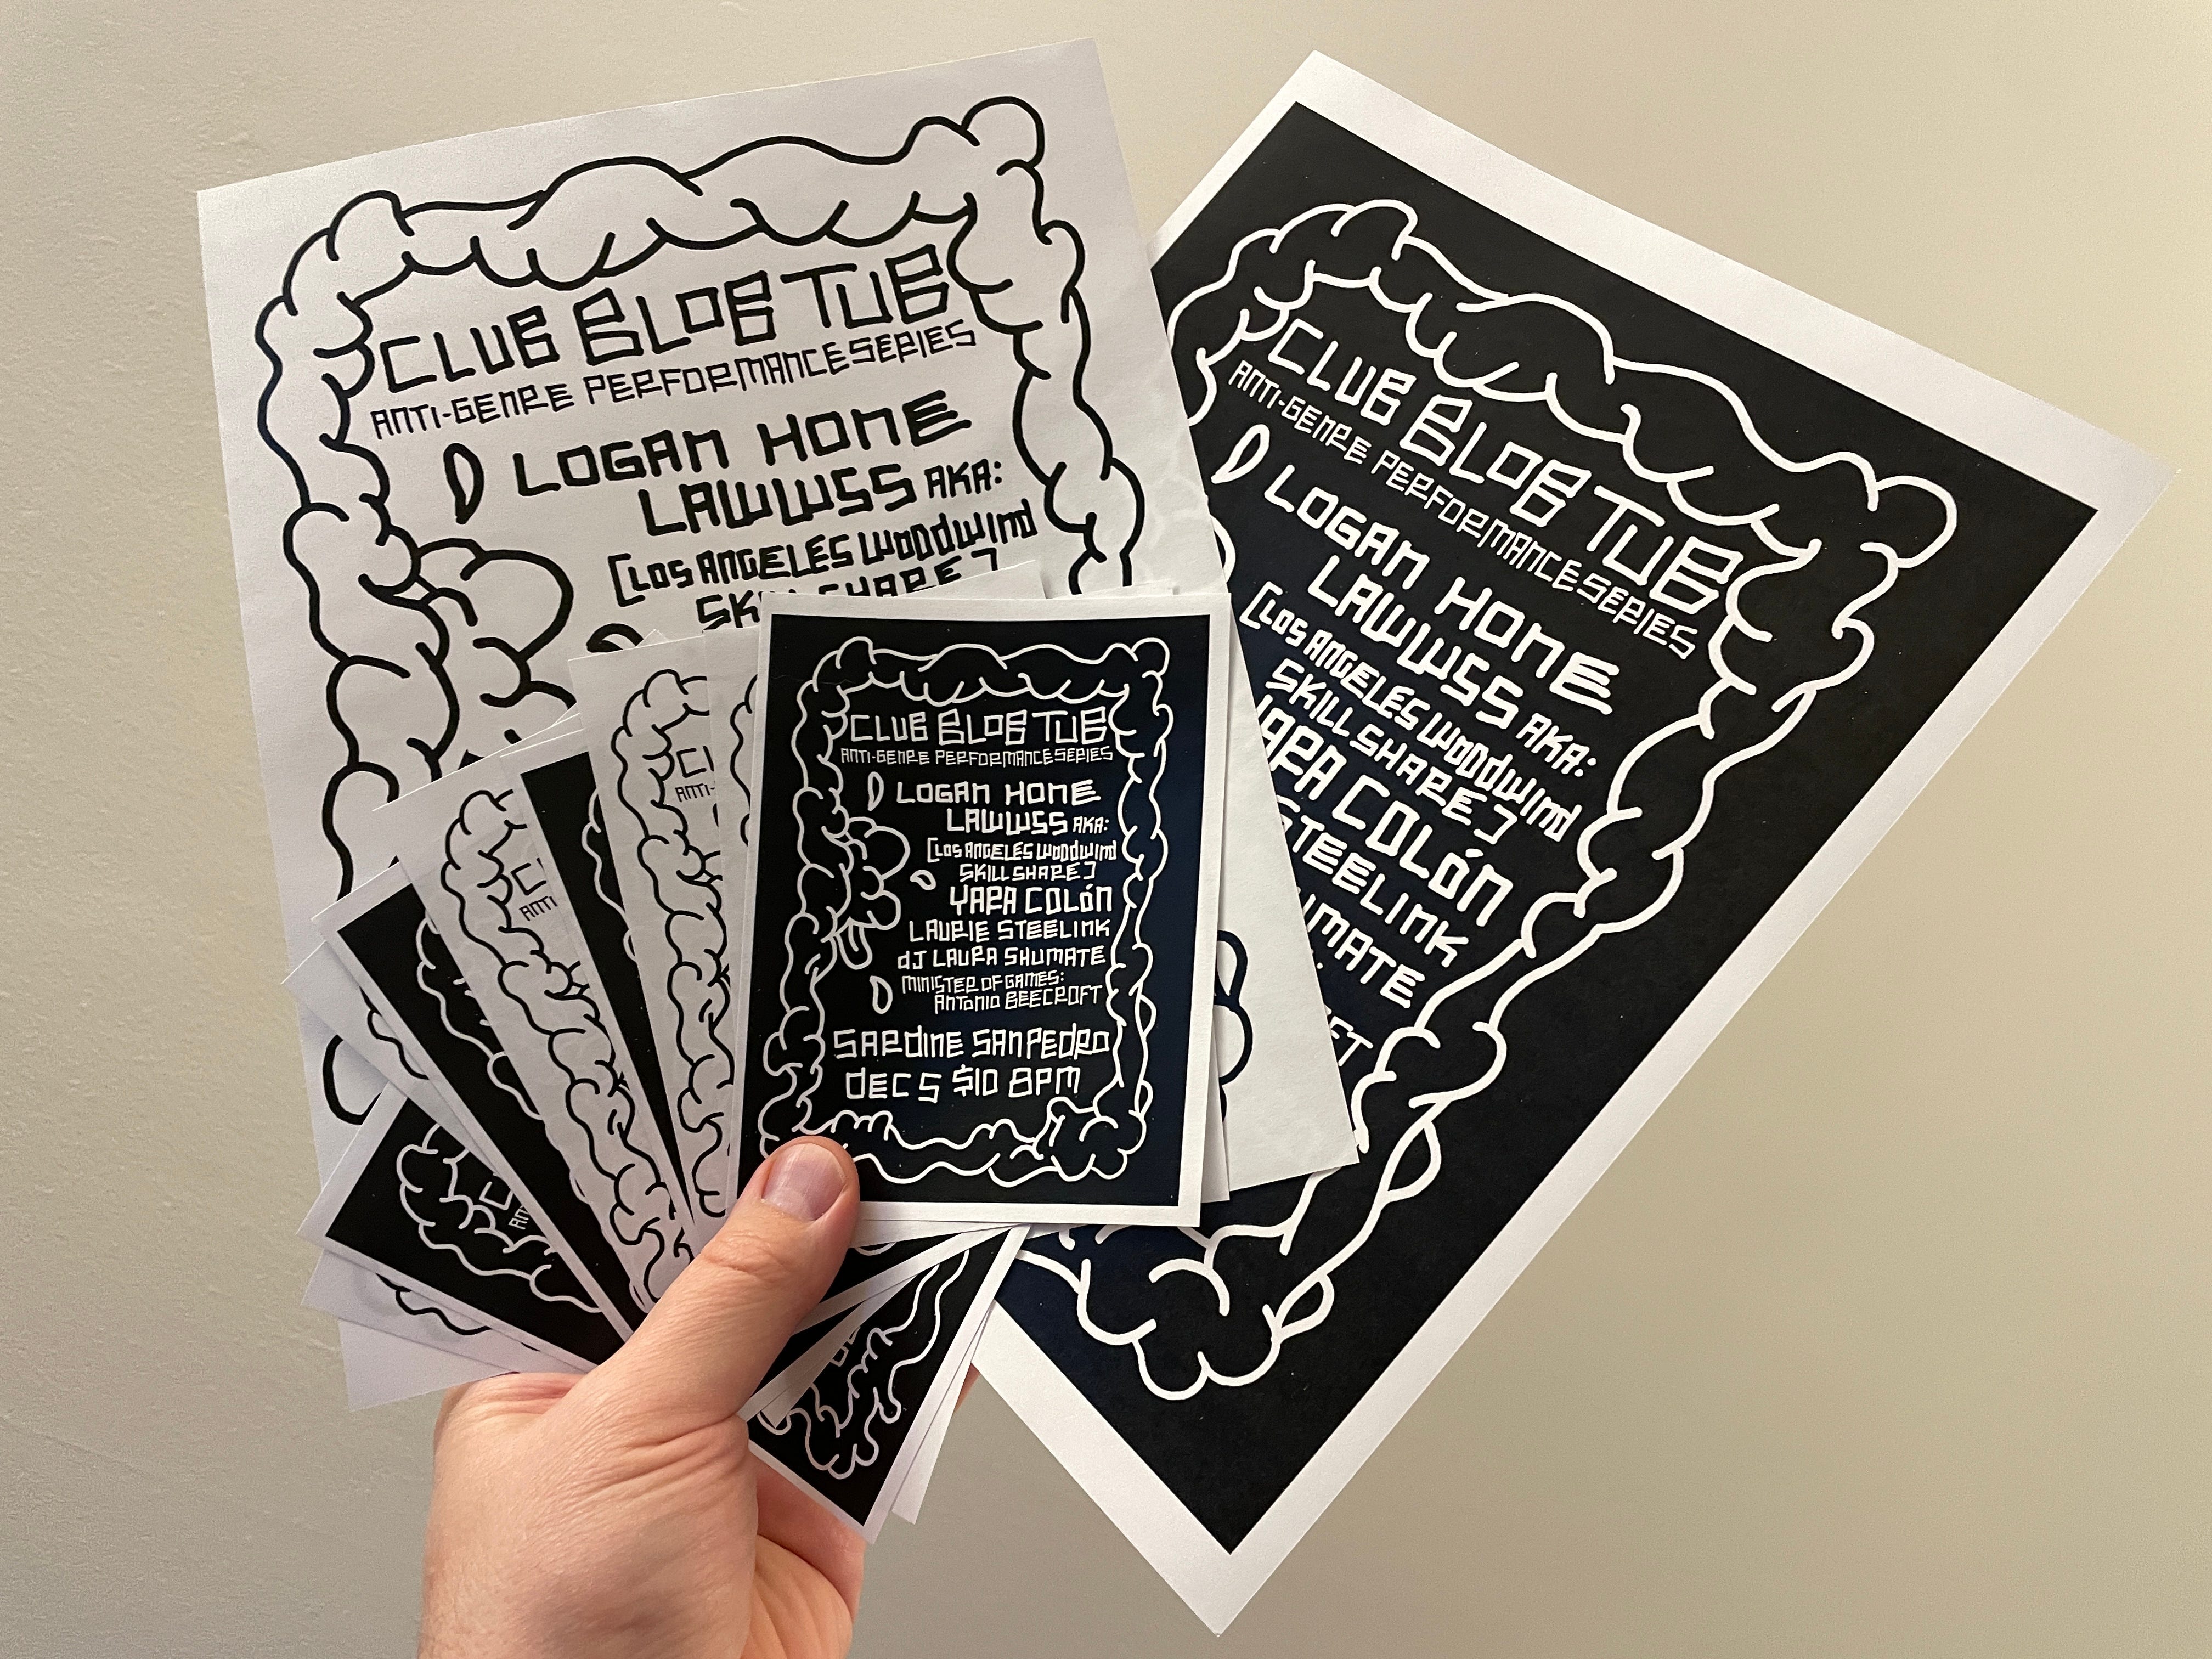 CLUB BLOB TUB
ANTI-GENRE PERFORMANCE SERIES
LOGAN HONE
LAWWSS AKA:
[LOS ANGELES WOODWIND
SKILL SHARE]
CLUB BLOB TUB
ANTI-GENRE PERFORMANCE SERIES
LOGAN HONE
LAWWSS AKA:
[LOS ANGELES WOODWIND
SKILL SHARE]
YARA COLÓN
STEELINK
UMATE
FT
CLUB BLOB TUB
ANTI-GENRE PERFORMANCE SERIES
LOGAN HONE
LAWWSS AKA:
[LOS ANGELES WOODWIND
SKILL SHARE]
YARA COLÓN
LAURIE STEELINK
DJ LAURA SHUMATE
MINISTER OF GAMES:
ANTONIO BEECROFT
SARDINE SAN PEDRO
DEC 5 $10 8PM
CL
ANTI-
C
ANTI